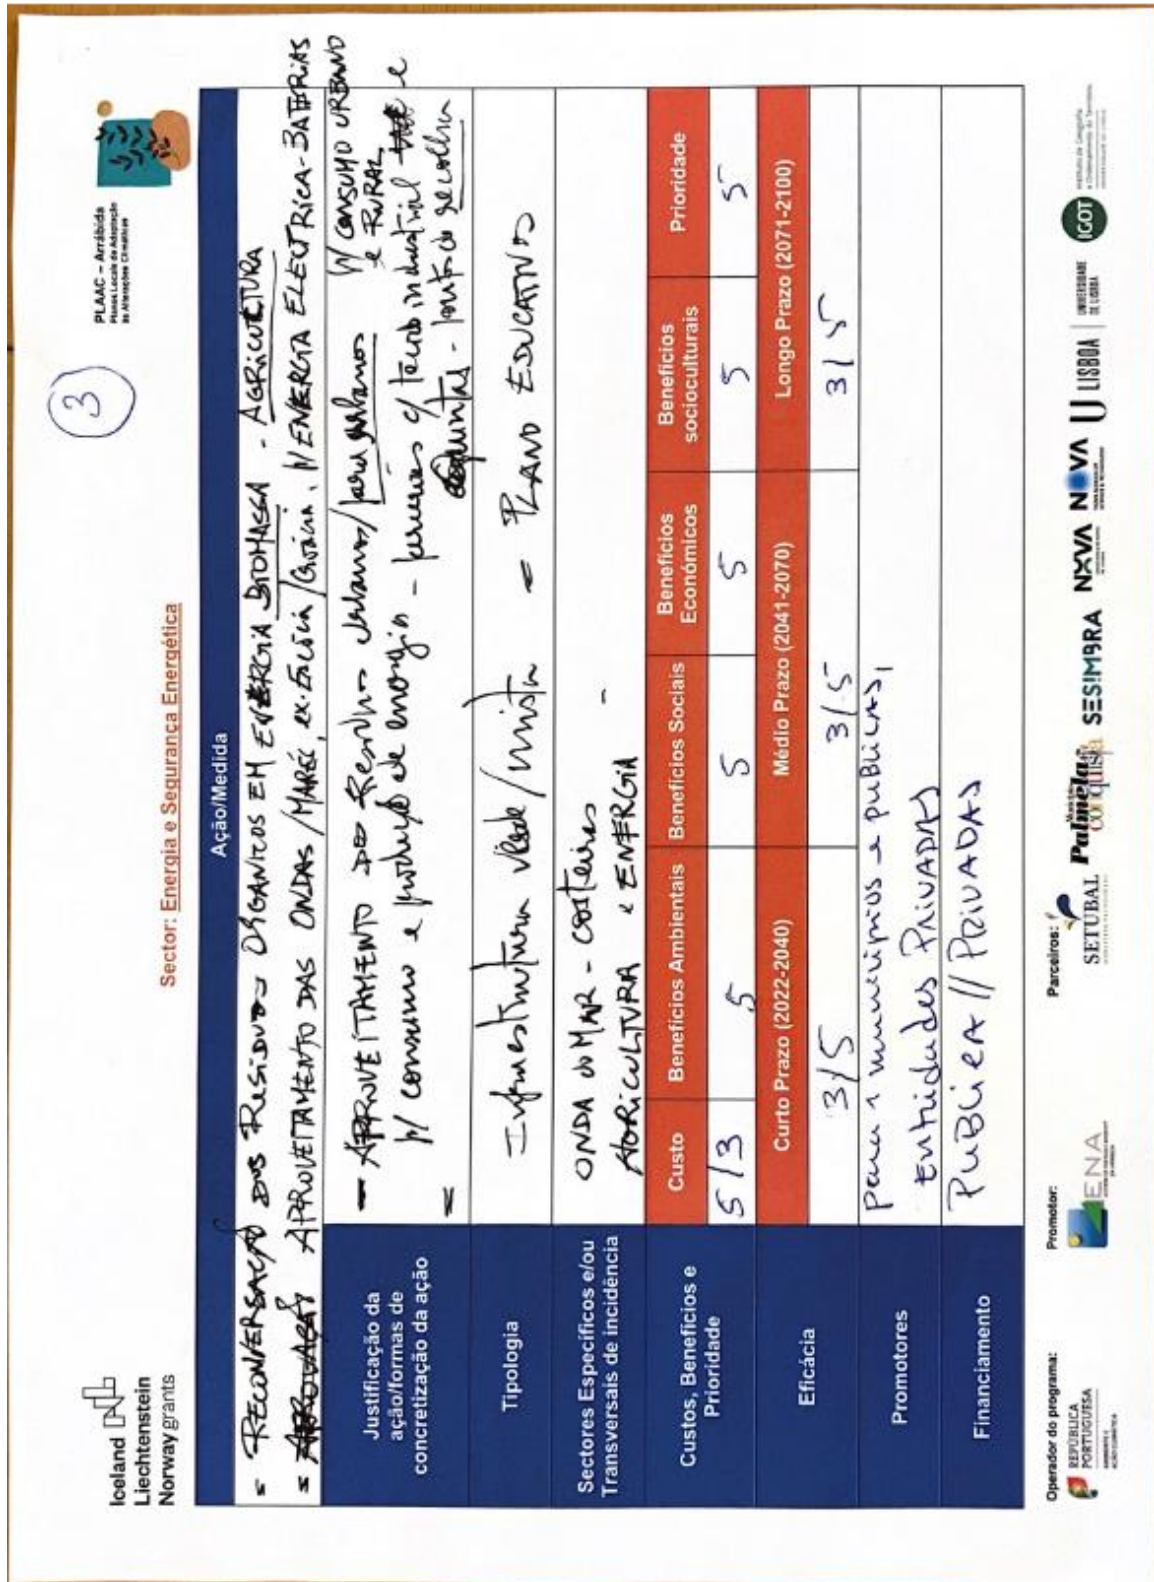 Iceland
Liechtenstein
Norway grants
3
PLAAC – Arrábida
Planos Locais de Adaptação
às Alterações Climáticas
Sector: Energia e Segurança Energética
Ação/Medida
- RECONVERSAÇÃO DOS RESIDUOS ORGANICOS EM ENERGIA BIOMASSA - AGRICULTURA
- APROVEITAMENTO DAS ONDAS/MARÉ, ex. Escócia/Grécia. P/ENERGIA ELECTRICA-BATERIAS
Justificação da
ação/formas de
concretização da ação
- APROVEITAMENTO DE Residuos urbanos/para urbanos P/ CONSUMO URBANO
e RURAL
p/ consumo e produção de energia - parcerias c/ tecido industrial e
quintas - pontos de recolha
Tipologia
Infraestrutura Verde/mista = PLANO EDUCATIVOS
Sectores Específicos e/ou
Transversais de incidência
ONDA do MAR - COSTEIRAS
AGRICULTURA e ENERGIA
Custos, Benefícios e
Prioridade
Custo Benefícios Ambientais Benefícios Sociais Benefícios
Económicos Benefícios
socioculturais Prioridade
5/3 5 5 5 5 5
Eficácia
Curto Prazo (2022-2040) Médio Prazo (2041-2070) Longo Prazo (2071-2100)
3/5 3/5 3/5
Promotores
para municipios e publicas,
Entidades PRIVADAS
Financiamento
PUBLICA // PRIVADAS
Operador do programa:
REPÚBLICA
PORTUGUESA
AMBIENTE E
AÇÃO CLIMÁTICA
Promotor:
ENA
Parceiros:
SETUBAL
Município
Palmela
conquista
SESIMBRA
NOVA
NOVA
U LISBOA
UNIVERSIDADE
DE LISBOA
IGOT
Instituto de Geografia
e Ordenamento do Território